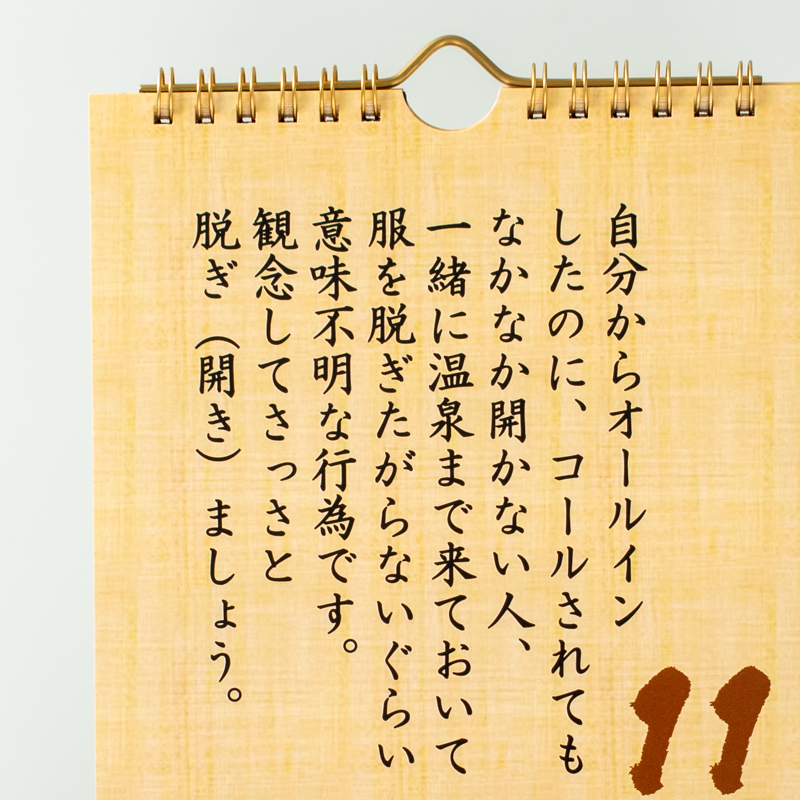 自分からオールイン
したのに、コールされても
なかなか開かない人、
一緒に温泉まで来ておいて
服を脱ぎたがらないぐらい
意味不明な行為です。
観念してさっさと
脱ぎ（開き）ましょう。
11